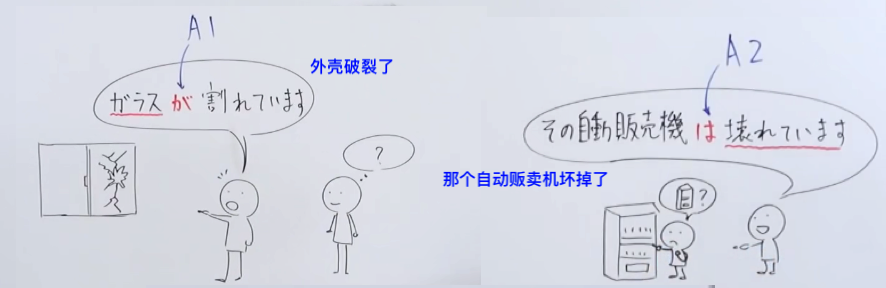 A1
外壳破裂了
ガラスが割れています
?
A2
その自動販売機は壊れています
那个自动贩卖机坏掉了
?